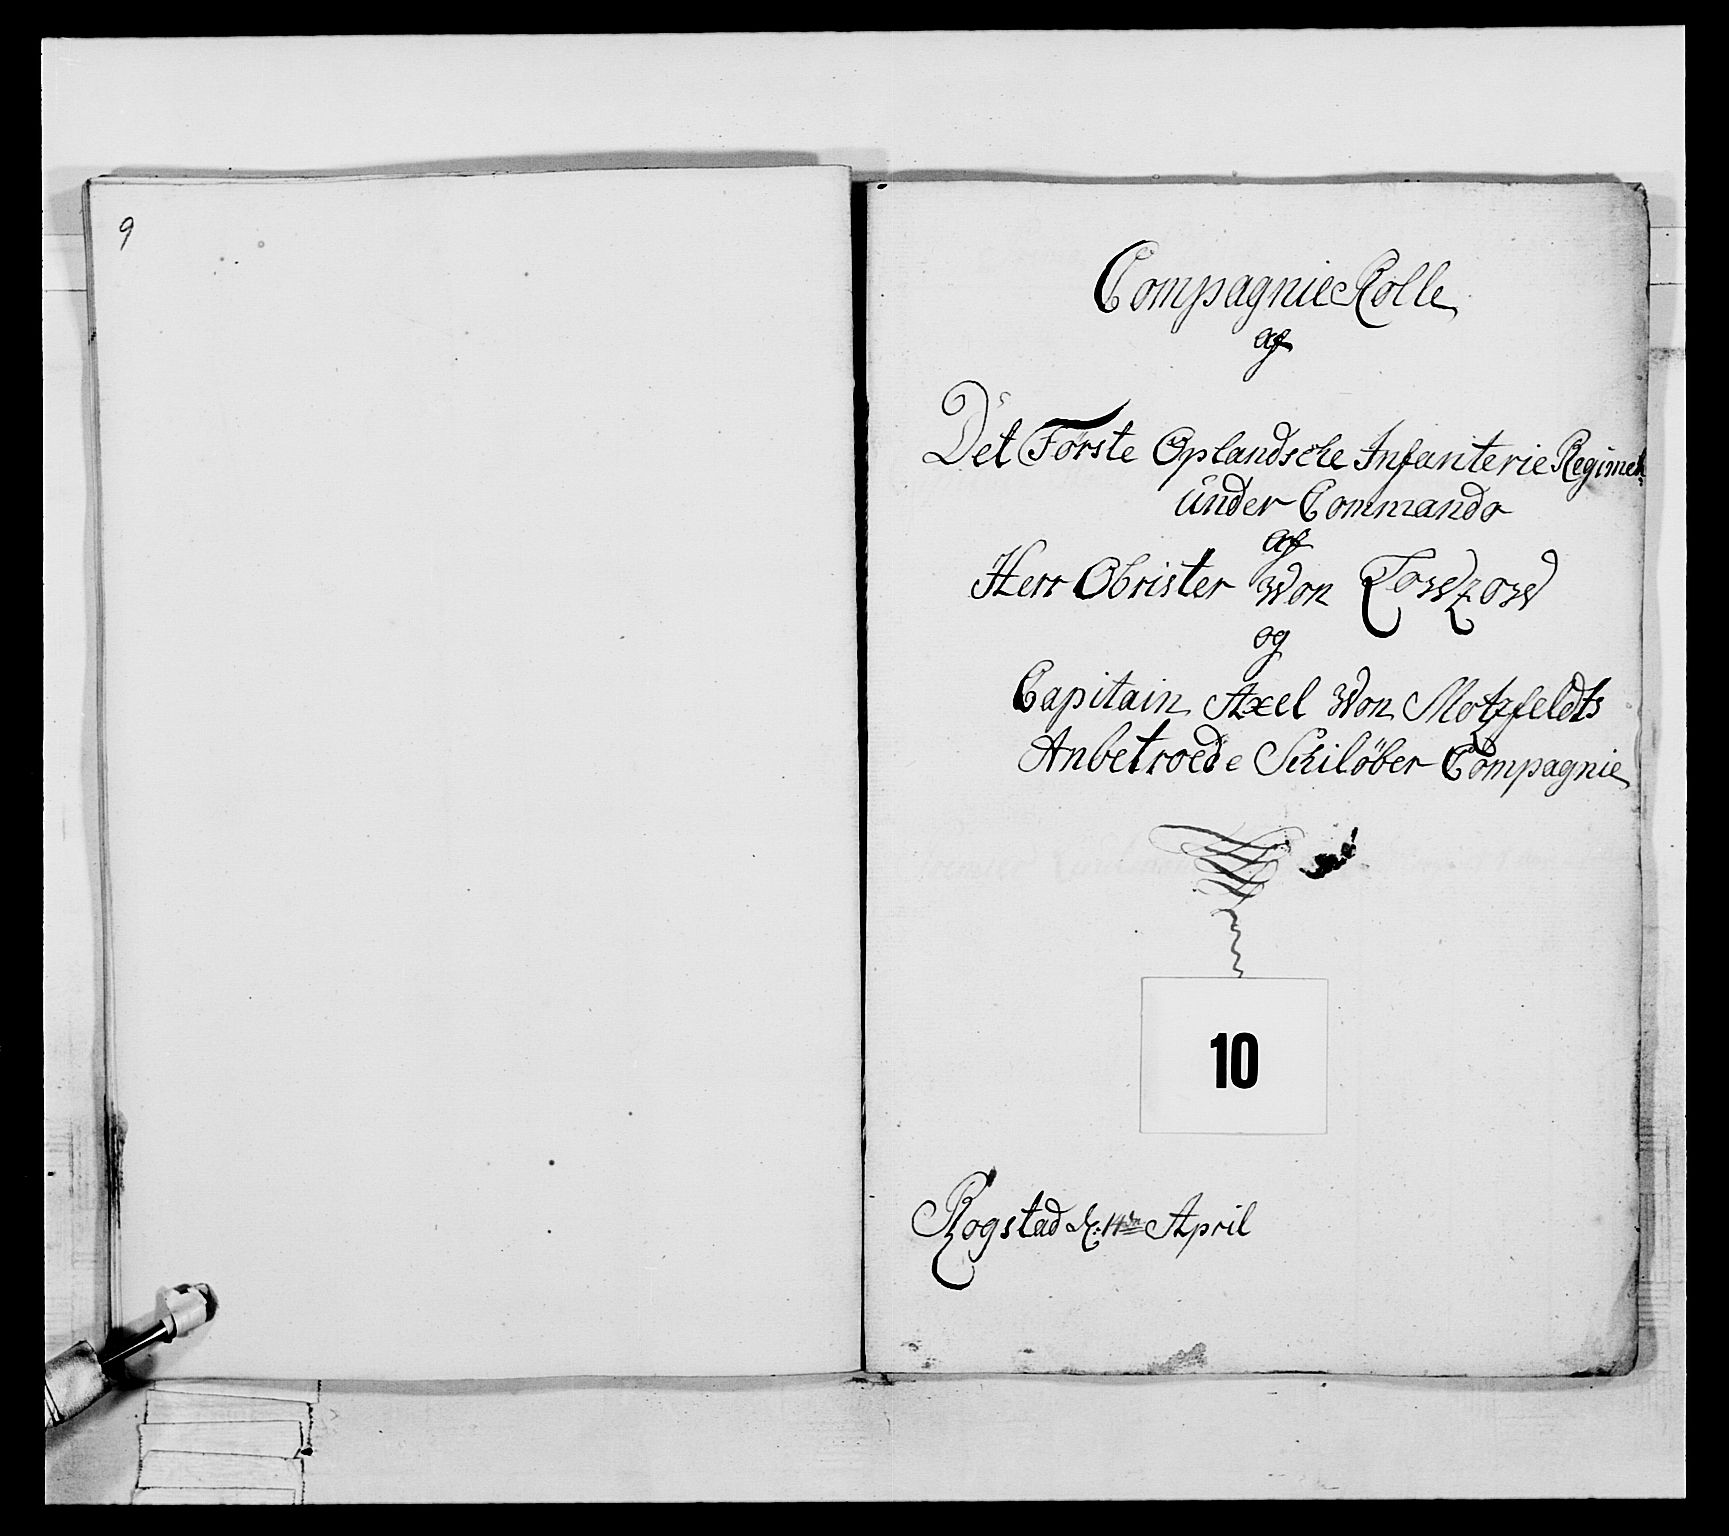 9
Compagnie Rolle
af
Det Første Oplandsche Infanterie Regimet
under Commando
af
Herr Obrister Won Towzow
og
Capitain Axel Won Motzfeldts
Anbetroede Schilöber Compagnie
10
Rogstad d: 14de April